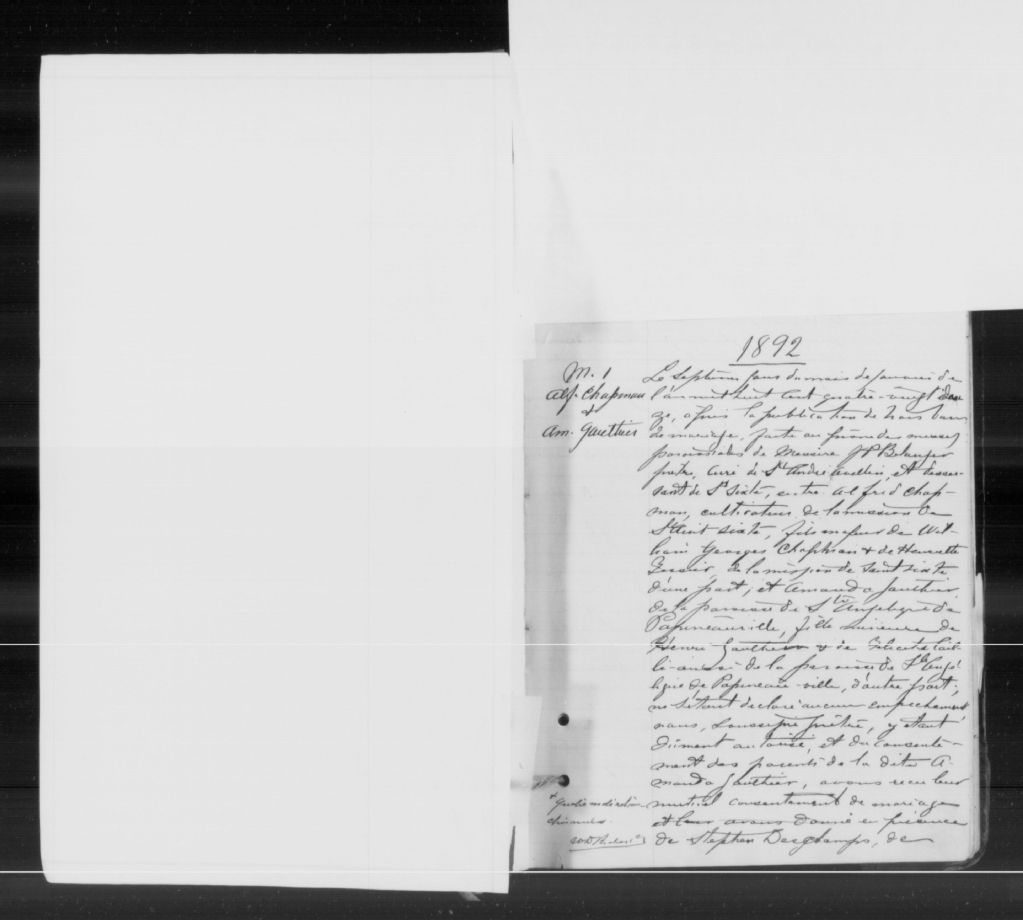 1892
M. 1
Alf. Chapman
&
Am. Gauthier
Le septième jour du mois de Janvier de
l'an mil huit cent quatre-vingt dou
ze, après la publication de trois bans
de mariage, faite au prône des messes
paroissiales de Messire J P Belanger
prêtre, curé de St André Avellin, et desser-
vant de St Sixte, entre Alfred Chap-
man, cultivateur de la mission de
Saint Sixte, fils majeur de Wil-
liam Georges Chapman & de Henriette
de la mission de Saint Sixte
d'une part; et Amanda Gauthier
de la paroisse de Ste Angelique de
Papineauville, fille mineure de
Henri Gauthier & de Félicité
aussi de la paroisse de Ste Angé
lique de Papineau-ville, d'autre part;
ne s'étant déclaré aucun empêchement
nous, soussigné prêtre, y étant
dûment autorisé, et du consente-
ment des parents de la dite A-
manda Gauthier, avons reçu leur
mutuel consentement de mariage
et leur avons donné en présence
de Stephen Deschamps, de